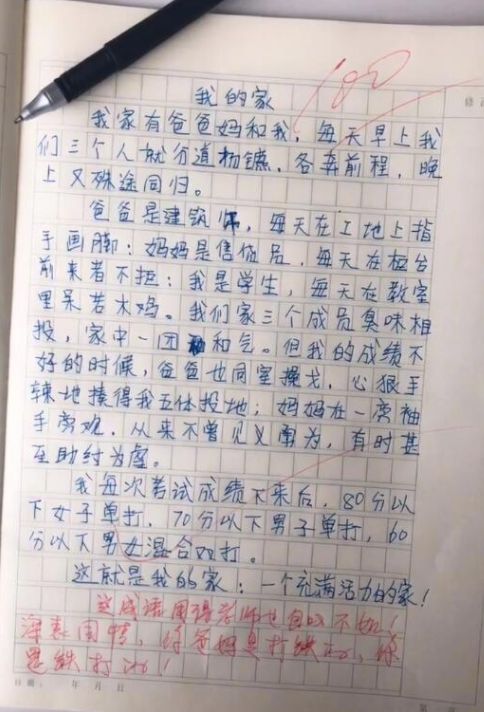 100
我的家
我家有爸爸妈和我,每天早上我
们三个人就分道杨镳,各奔前程,晚
上又殊途同归。
爸爸是建筑师,每天在工地上指
手画脚;妈妈是售货员,每天在柜台
前来者不拒;我是学生,每天在教室
里呆若木鸡。我们家三个成员臭味相
投,家中一团和气。但我的成绩不
好的时候,爸爸也同室操戈,心狠手
辣地揍得我五体投地;妈妈在一旁袖
手旁观,从来不曾见义勇为,有时甚
至助纣为虐。
我每次考试成绩下来后,80分以
下女子单打,70分以下男子单打,60
分以下男女混合双打。
这就是我的家:一个充满活力的家!
这成语用得老师也自叹不如!
你爸妈是打铁的,你
是铁打的!
日期: 年 月 日